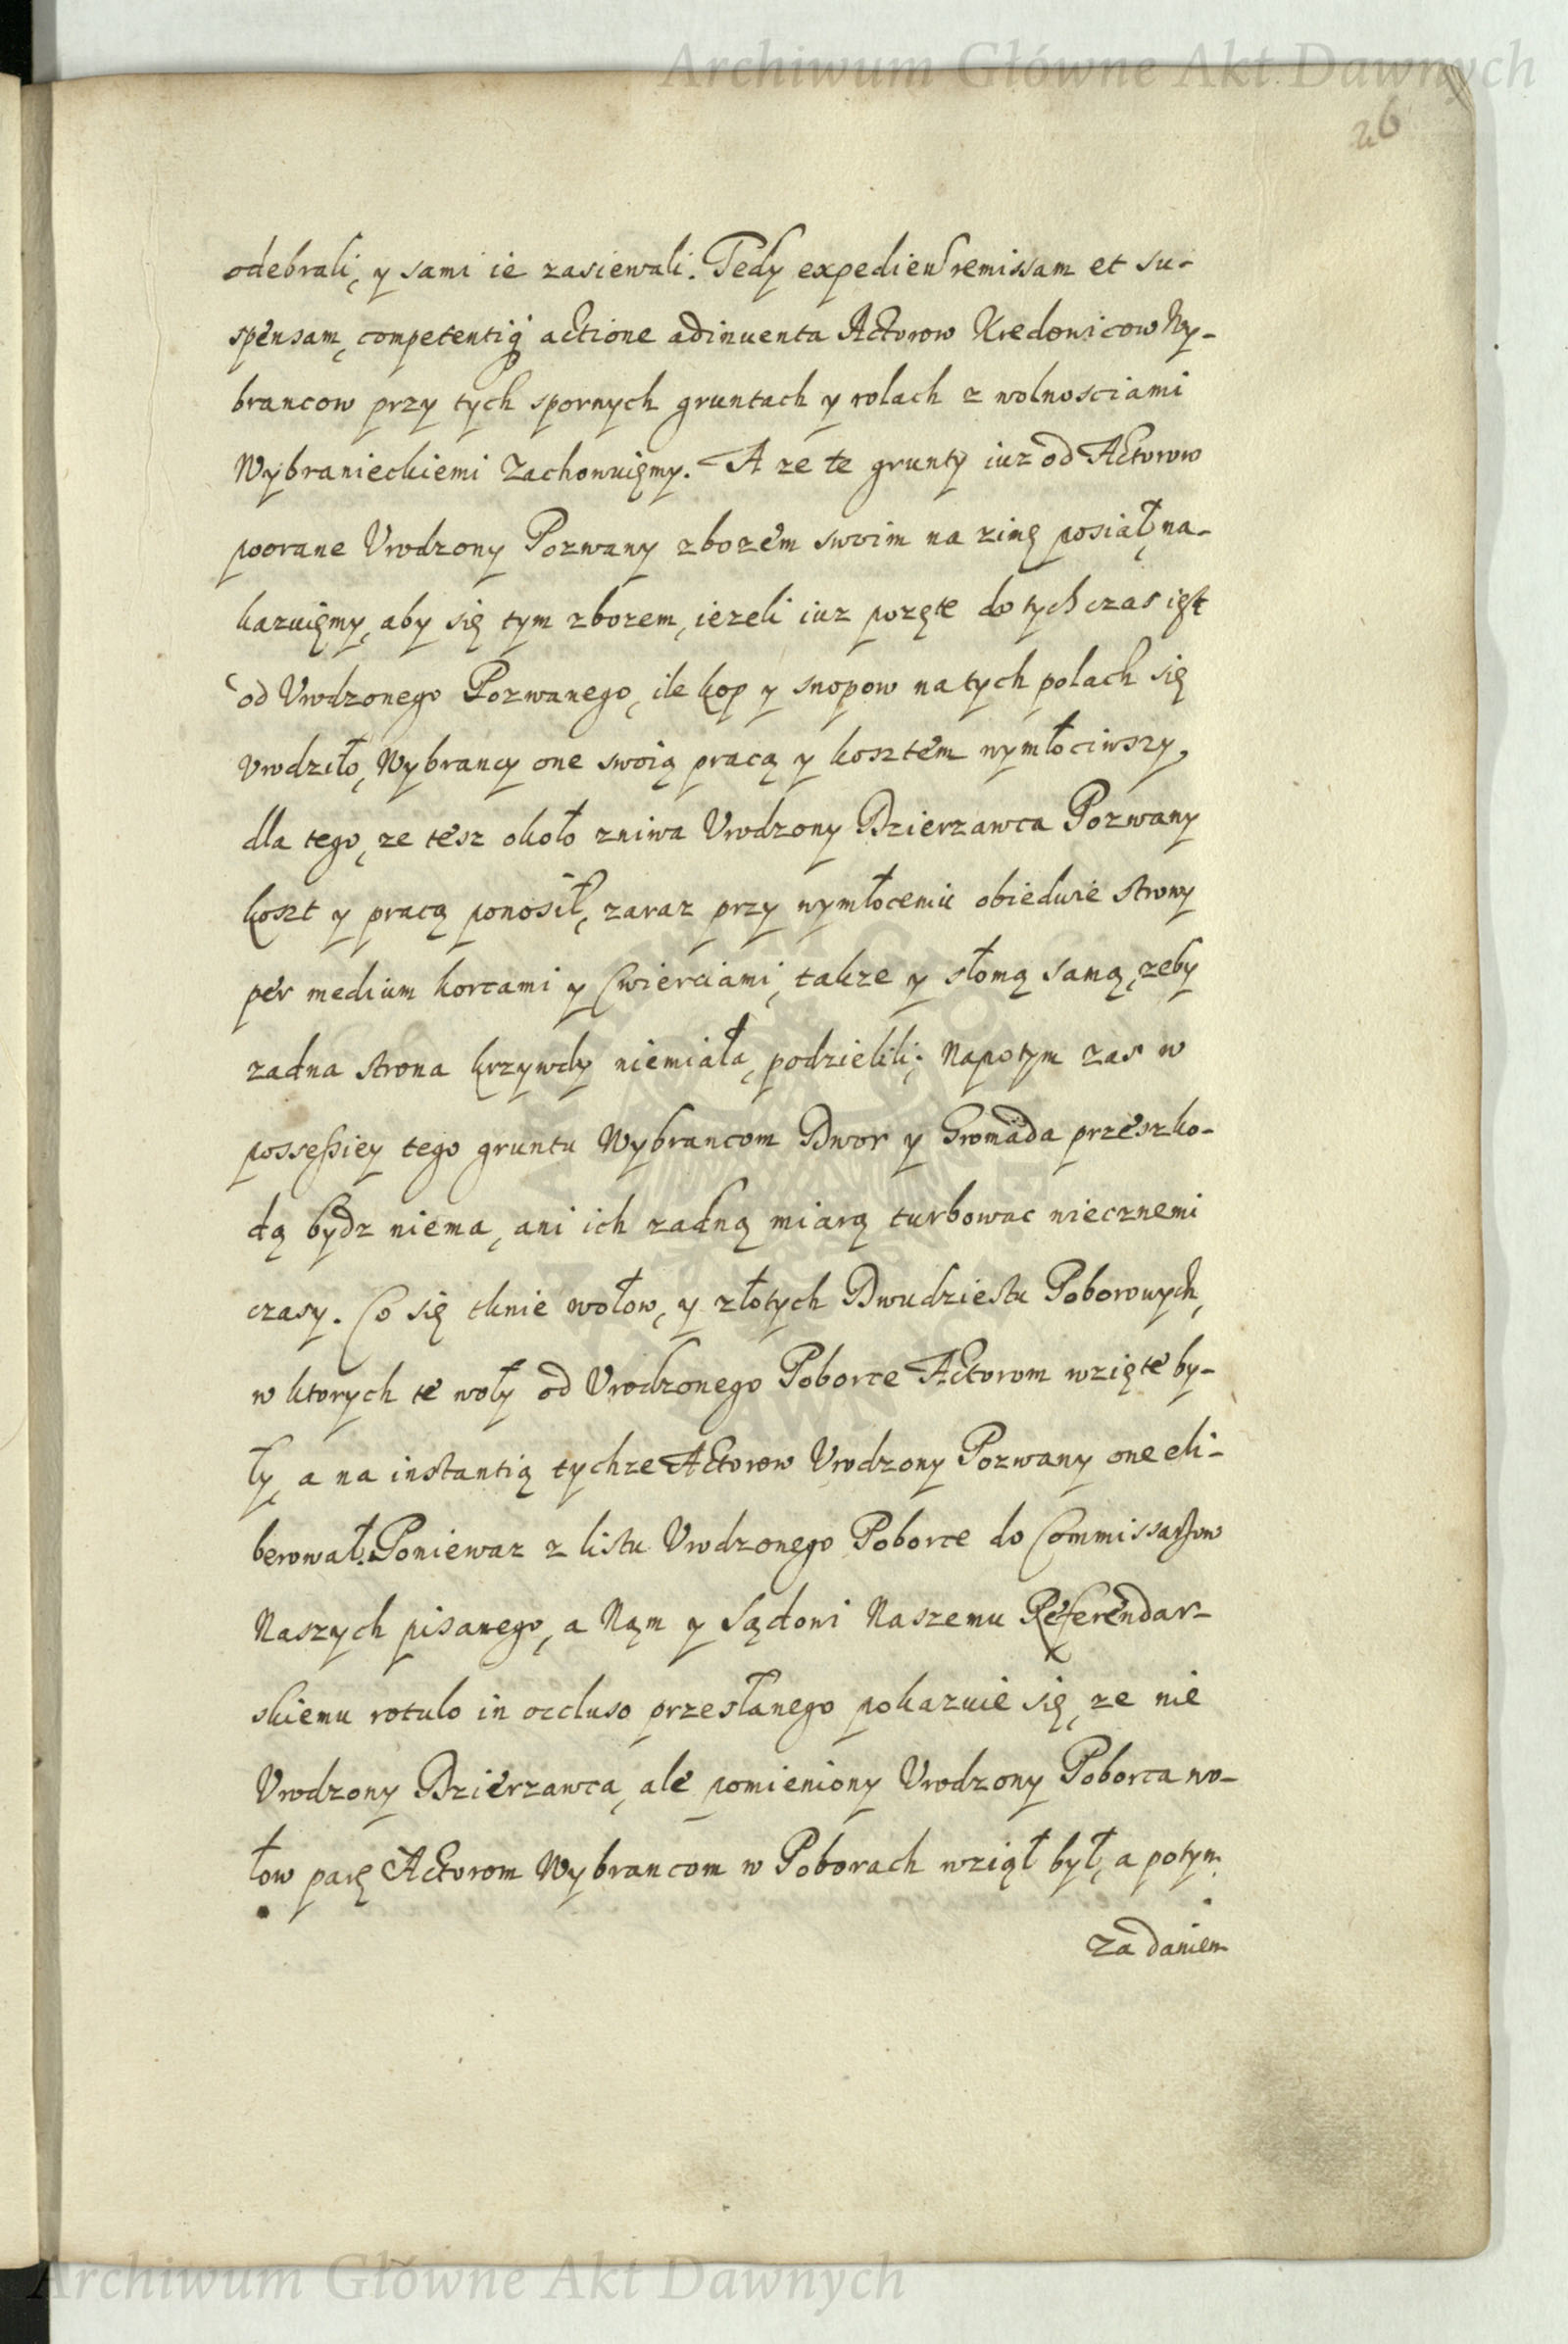 Archiwum Główne Akt Dawnych
26
odebrali, y sami ie zasiewali. Tedy expediendremissam et su-
spensam, competentią actione adinuenta Actorow Kredonicow Wy-
brancow przy tych spornych gruntach y rolach z wolnosciami
Wybranieckiemi Zachowuięmy. A ze te grunty iuz od Actorow
poorane Vrodzony Pozwany zbozem swoim na zimę posiał, na-
kazuięmy, aby się tym zbozem, iezeli iuz pozęte do tych czas iest
od Vrodzonego Pozwanego, ile kop y snopow na tych polach się
Vrodziło, Wybrancy one swoią pracą y kosztem wymłociwszy,
dla tego, ze tesz około zniwa Vrodzony Dzierzawca Pozwany
koszt y pracą ponosił, zaraz przy wymłoceniu obiedwie strony
per medium korcami y Cwierciami, takze y słomą samą, zeby
zadna strona krzywdy niemiała, podzielili; Napotym zas w
possessiey tego gruntu Wybrancom Dwor y Gromada przeszko-
dą bydz niema, ani ich zadną miarą turbowac wiecznemi
czasy. Co się tknie wołow, y złotych Dwudziestu Poborowych,
w ktorych te woły od Vrodzonego Poborce Actorom wzięte by-
ły, a na instantią tychze Actorow Vrodzony Pozwany one eli-
berował. Poniewaz z listu Vrodzonego Poborce do Commissarzow
Naszych pisanego, a Nąm y Sądowi Naszemu Referendar-
skiemu rotulo in occluso przesłanego pokazuie się, ze nie
Vrodzony Dzierzawca, ale pomieniony Vrodzony Poborca wo-
łow parę Actorom Wybrancom w Poborach wziął był, a potym
za daniem
Archiwum Główne Akt Dawnych